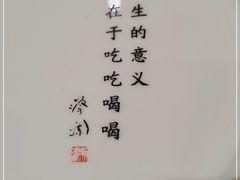 生的意义
在于吃吃喝喝
蔡澜